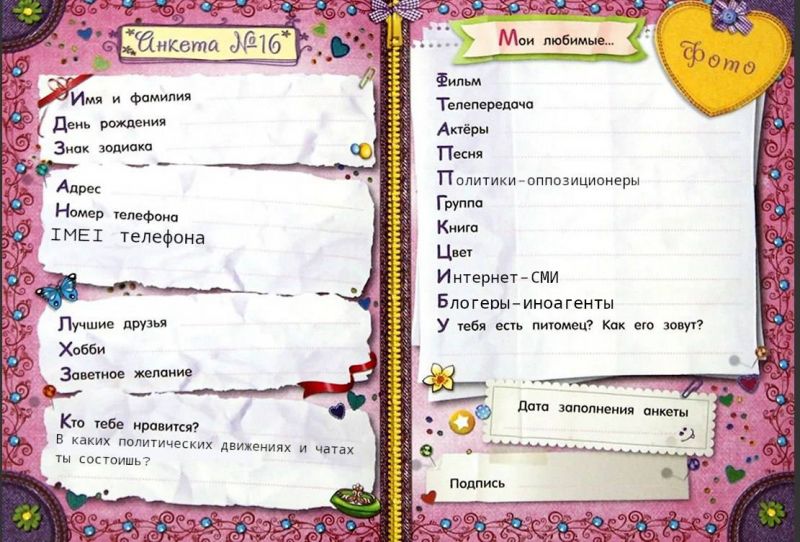 Анкета №16
Имя и фамилия
День рождения
Знак зодиака
Адрес
Номер телефона
IMEI телефона
Лучшие друзья
Хобби
Заветное желание
Кто тебе нравится?
В каких политических движениях и чатах
ты состоишь?
Мои любимые...
Фото
Фильм
Телепередача
Актёры
Песня
Политики-оппозиционеры
Группа
Книга
Цвет
Интернет-СМИ
Блогеры-иноагенты
У тебя есть питомец? Как его зовут?
Дата заполнения анкеты
Подпись